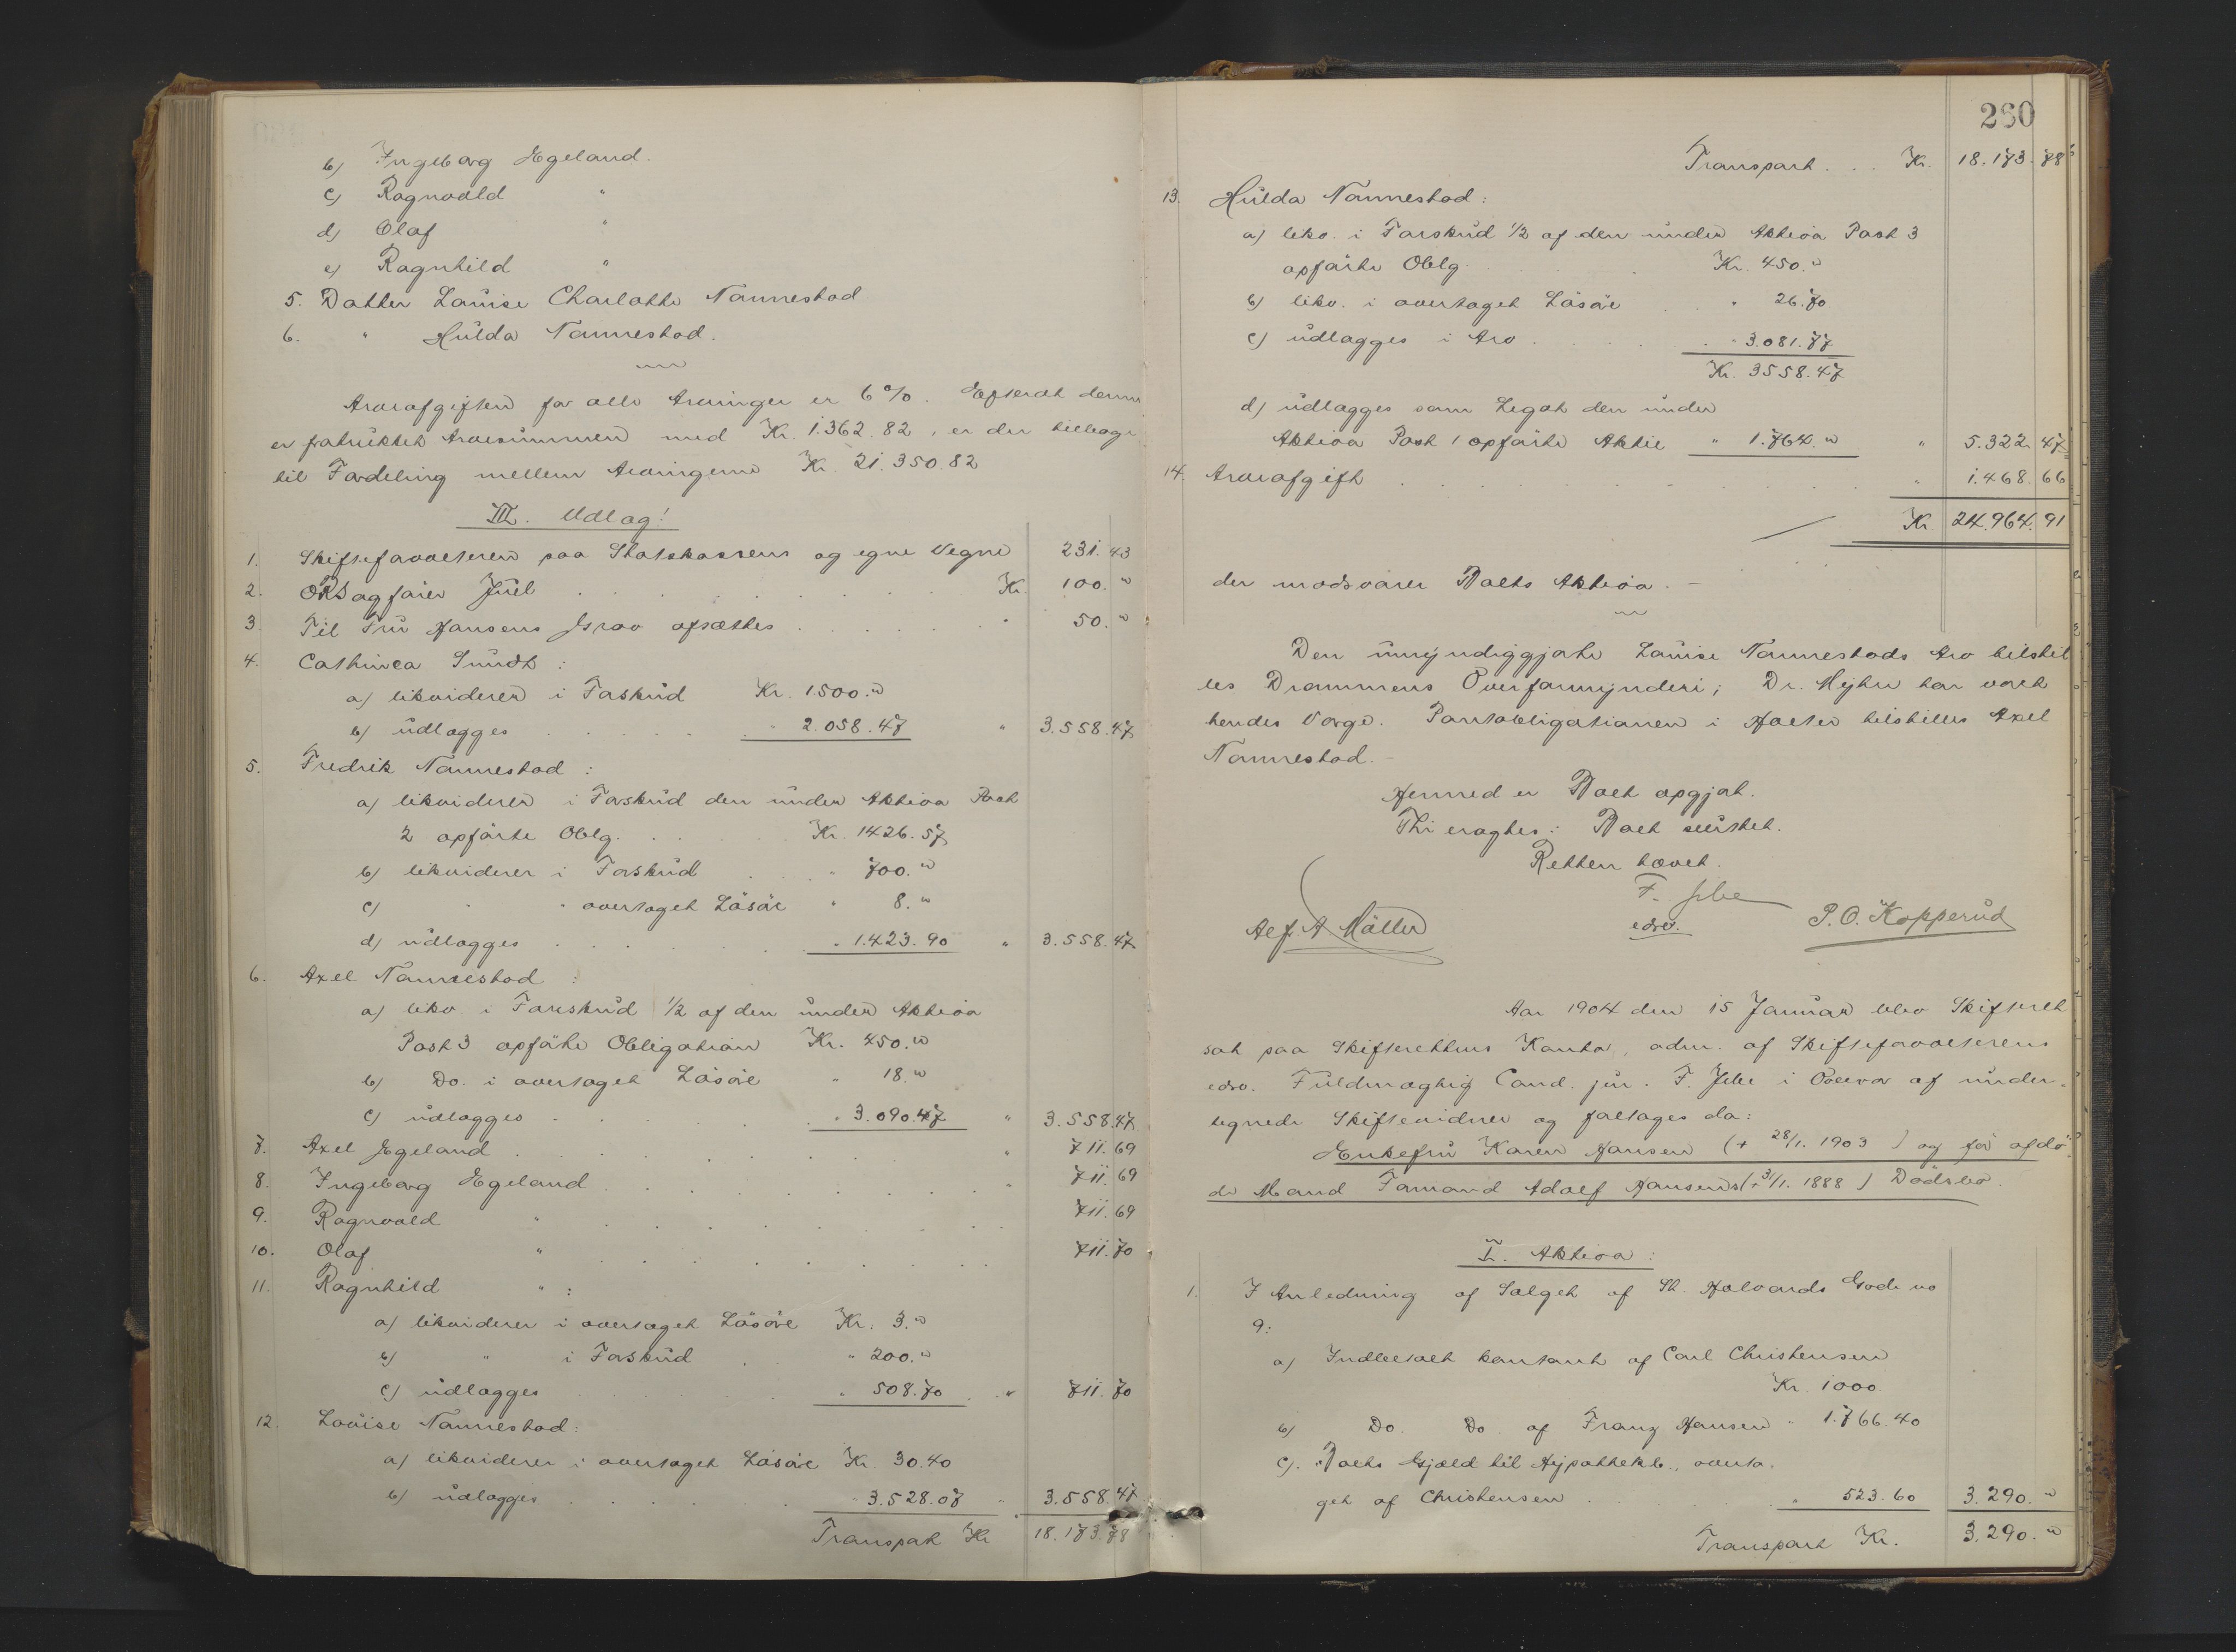 b) Ingeborg Egeland.
c) Ragnvald "
d) Olaf "
e) Ragnhild "
5. Datter Louise Charlotte Nannestad
6. " Hulda Nannestad.
Arveafgiften for alle Arvinger er 6%. Efterat denne
er fratrukket Arvesummen med Kr. 1.362.82, er der tilbage
til Fordeling mellem Arvingerne Kr. 21.350.82
III. Udlæg:
1. Skifteforvalteren paa Statskassens og egne Vegne 231.43
2. ORSagfører Juel Kr. 100."
3. Til Fru Hansens Grav afsættes " 50."
4. Cathinca Sundt:
a) likviderer i Forskud Kr. 1500."
b) udlægges " 2.058.47 " 3.558.47
5. Fredrik Nannestad:
a) likviderer i Forskud den under Aktiva Post
2 opførte Oblg. Kr. 1426.57
b) likviderer i Forskud " 700."
c) " " overtaget Løsøre " 8."
d) udlægges " 1.423.90 " 3.558.47
6. Axel Nannestad:
a) likv. i Forskud 1/2 af den under Aktiva
Post 3 opførte Obligation Kr. 450."
b) Do. i overtaget Løsøre " 18."
c) udlægges " 3.090.47 " 3.558.47
7. Axel Egeland " 711.69
8. Ingeborg Egeland " 711.69
9. Ragnvald " 711.69
10. Olaf " 711.70
11. Ragnhild ":
a) likviderer i overtaget Løsøre Kr. 3."
b) " i Forskud " 200."
c) udlægges " 508.70 " 711.70
12. Louise Nannestad:
a) likviderer i overtaget Løsøre Kr. 30.40
b) udlægges " 3.528.07 " 3.558.47
Transport Kr 18.173.78
260
Transport . . Kr. 18.173.78
13. Hulda Nannestad:
a) likv. i Forskud 1/2 af den under Aktiva Post 3
opførte Oblg. Kr. 450."
b) likv. i overtaget Løsøre " 26.70
c) udlægges i Arv " 3.081.77
Kr. 3558.47
d) udlægges som Legat den under
Aktiva Post 1 opførte Aktie " 1.764." " 5.322.47
14. Arveafgift " 1.468.66
Kr 24.964.91
der modsvarer Boets Aktiva.-
Den umyndiggjorte Louise Nannestads Arv tilstil
les Drammens Overformynderi; Dr. Myhre har været
hendes Værge. Pantobligationen i Holter tilstilles Axel
Nannestad.-
Hermed er Boet opgjort.
Thi eragtes: Boet sluttet.
Retten hævet.
F. Ihle
edsv.
Alf. A Møller
P.O. Kopperud
Aar 1904 den 15 Januar blev Skifteret
sat paa Skifterettens Kontor, adm. af Skifteforvalterens
edsv. Fuldmægtig Cand. jur. F. Ihle i Overvær af under-
tegnede Skiftevidner og foretages da:
Enkefru Karen Hansen (+ 28/1. 1903) og før afdø-
de Mand Formand Adolf Hansens (+ 31/1. 1888) Dødsbo.
I. Aktiva:
1. I Anledning af Salget af St. Halvards Gade no
9:
a) Indbetalt kontant af Carl Christensen
Kr. 1000.
b) Do. Do. af Franz Hansen " 1.766.40
c). Boets Gjæld til Hypothekb., overta-
get af Christensen " 523.60 3.290."
Transport Kr. 3.290."